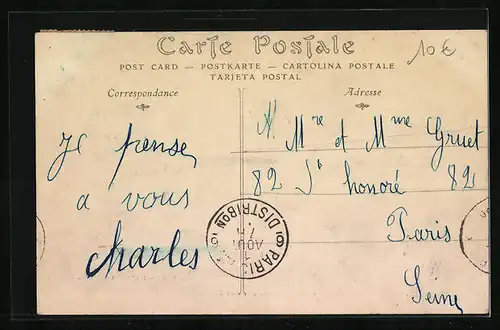 Carte Postale
10 €
POST CARD — POSTKARTE — CARTOLINA POSTALE
TARJETA POSTAL
Correspondance
Adresse
Je pense
a vous
Charles
A. Mre et Mme Gruet
82 St honoré 82
Paris
Seine
PARIS
DISTRIBON
AOUT